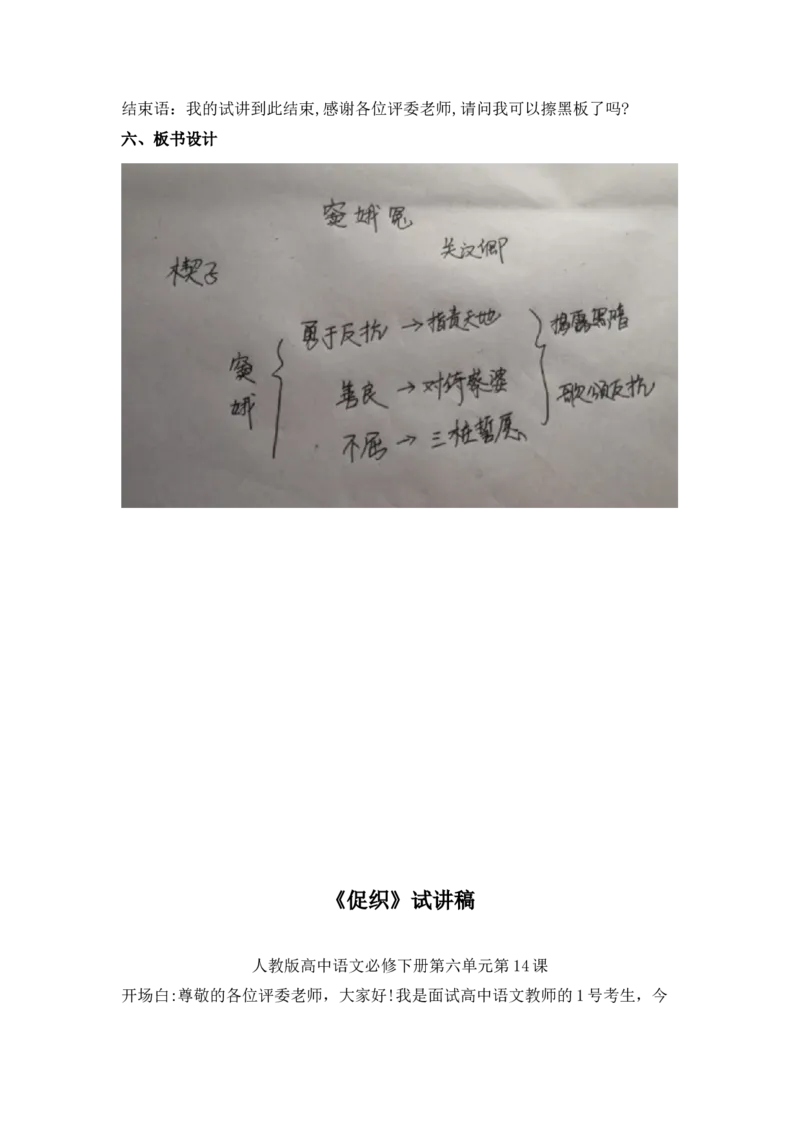 结束语：我的试讲到此结束,感谢各位评委老师,请问我可以擦黑板了吗?
六、板书设计
窦娥冤
关汉卿
楔子
窦娥
勇于反抗→指责天地
善良→对待蔡婆
不屈→三桩誓愿
揭露黑暗
歌颂反抗
《促织》试讲稿
人教版高中语文必修下册第六单元第14课
开场白:尊敬的各位评委老师，大家好!我是面试高中语文教师的1号考生，今